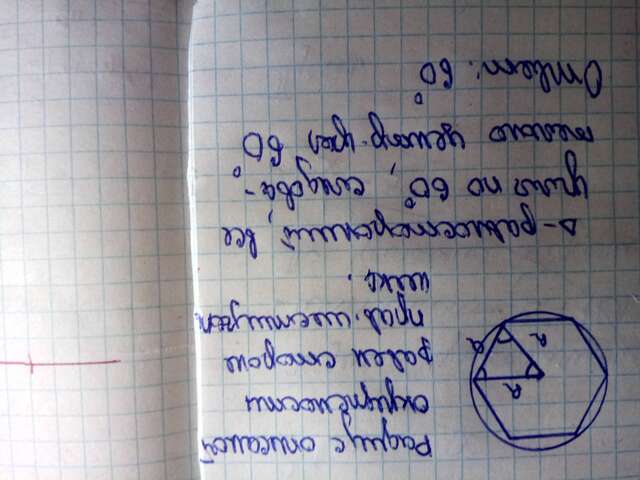 Радиус описаной
окружности
равен стороне
прав. шестиуголь
ника.
a
a
a
Δ-равносторонний, все
углы по 60°, следова-
тельно центр. угол 60°
Ответ: 60°